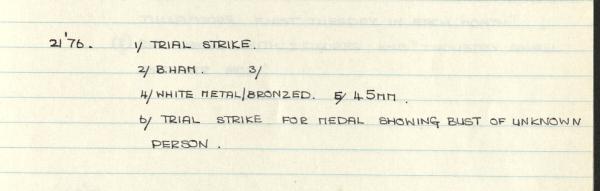 21'76. 1/ TRIAL STRIKE.
2/ B.HAM. 3/
4/ WHITE METAL/BRONZED. 5/ 45MM.
6/ TRIAL STRIKE FOR MEDAL SHOWING BUST OF UNKNOWN
PERSON.